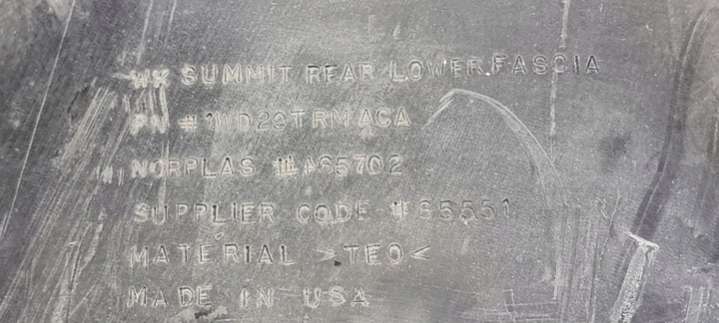 WK SUMMIT REAR LOWER FASCIA
PN #1WD20TRMACA
NORPLAS #A65702
SUPPLIER CODE #65551
MATERIAL >TEO<
MADE IN USA